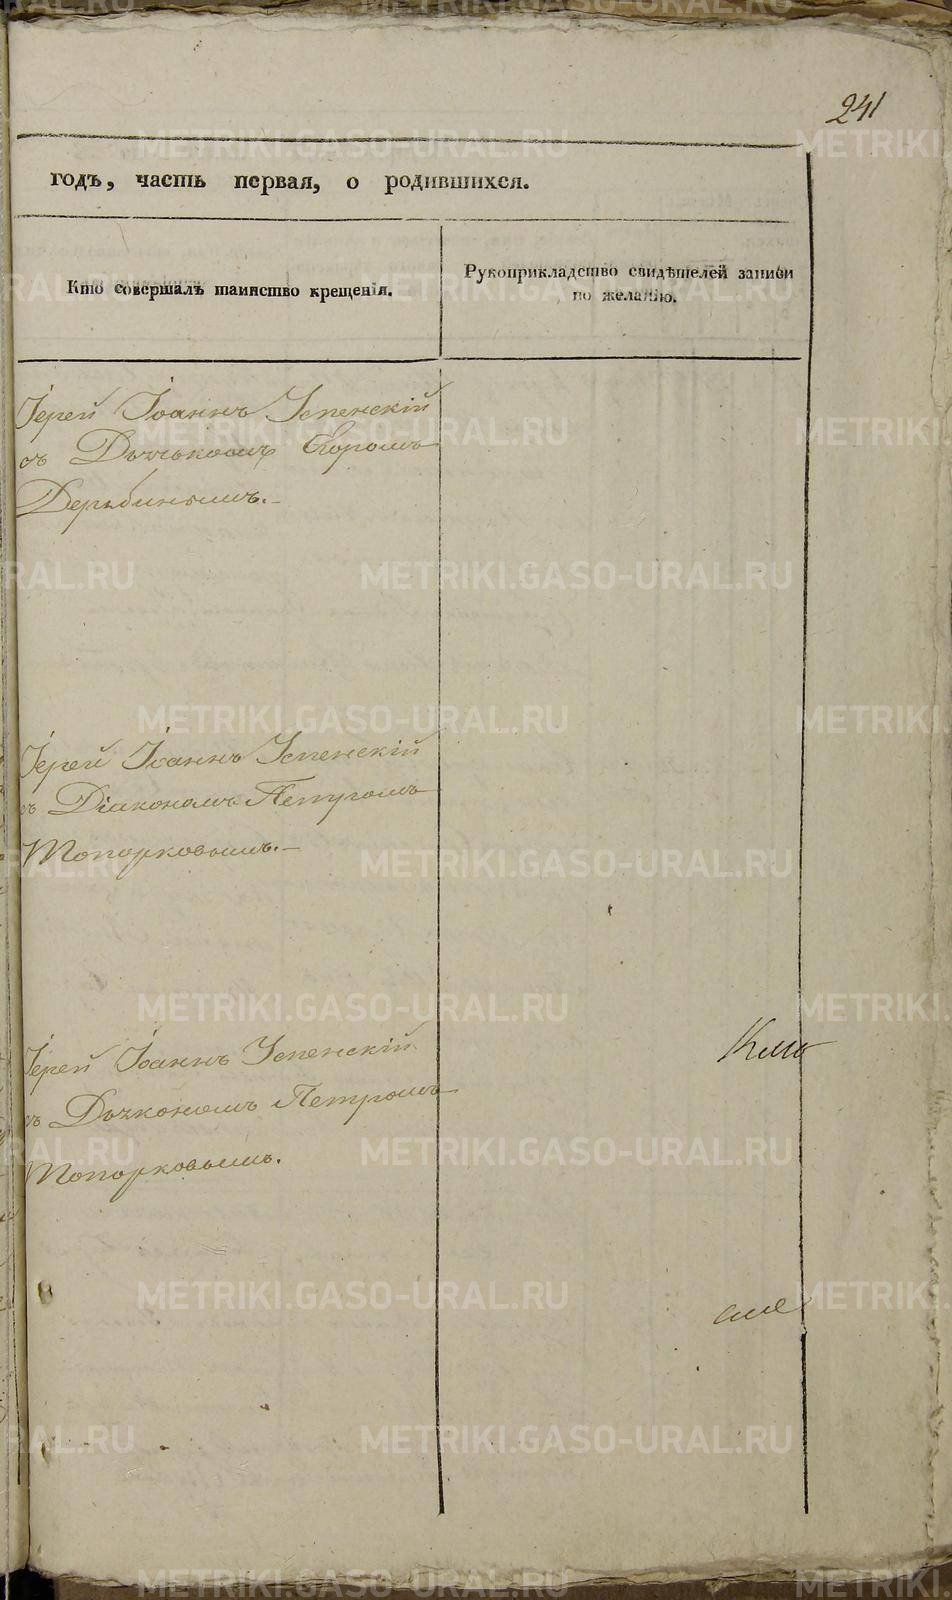 241
годъ, часть первая, о родившихся.
Кто совершалъ таинство крещенія.
Рукоприкладство свидѣтелей записи
по желанію.
Іерей Іоаннъ Успенскій
съ Дьячькомъ Егоромъ
Дерябинымъ.-
Іерей Іоаннъ Успенскій
съ Діакономъ Петромъ
Топорковымъ.-
Іерей Іоаннъ Успенскій
съ Петромъ
Топорковымъ.
METRIKI.GASO-URAL.RU